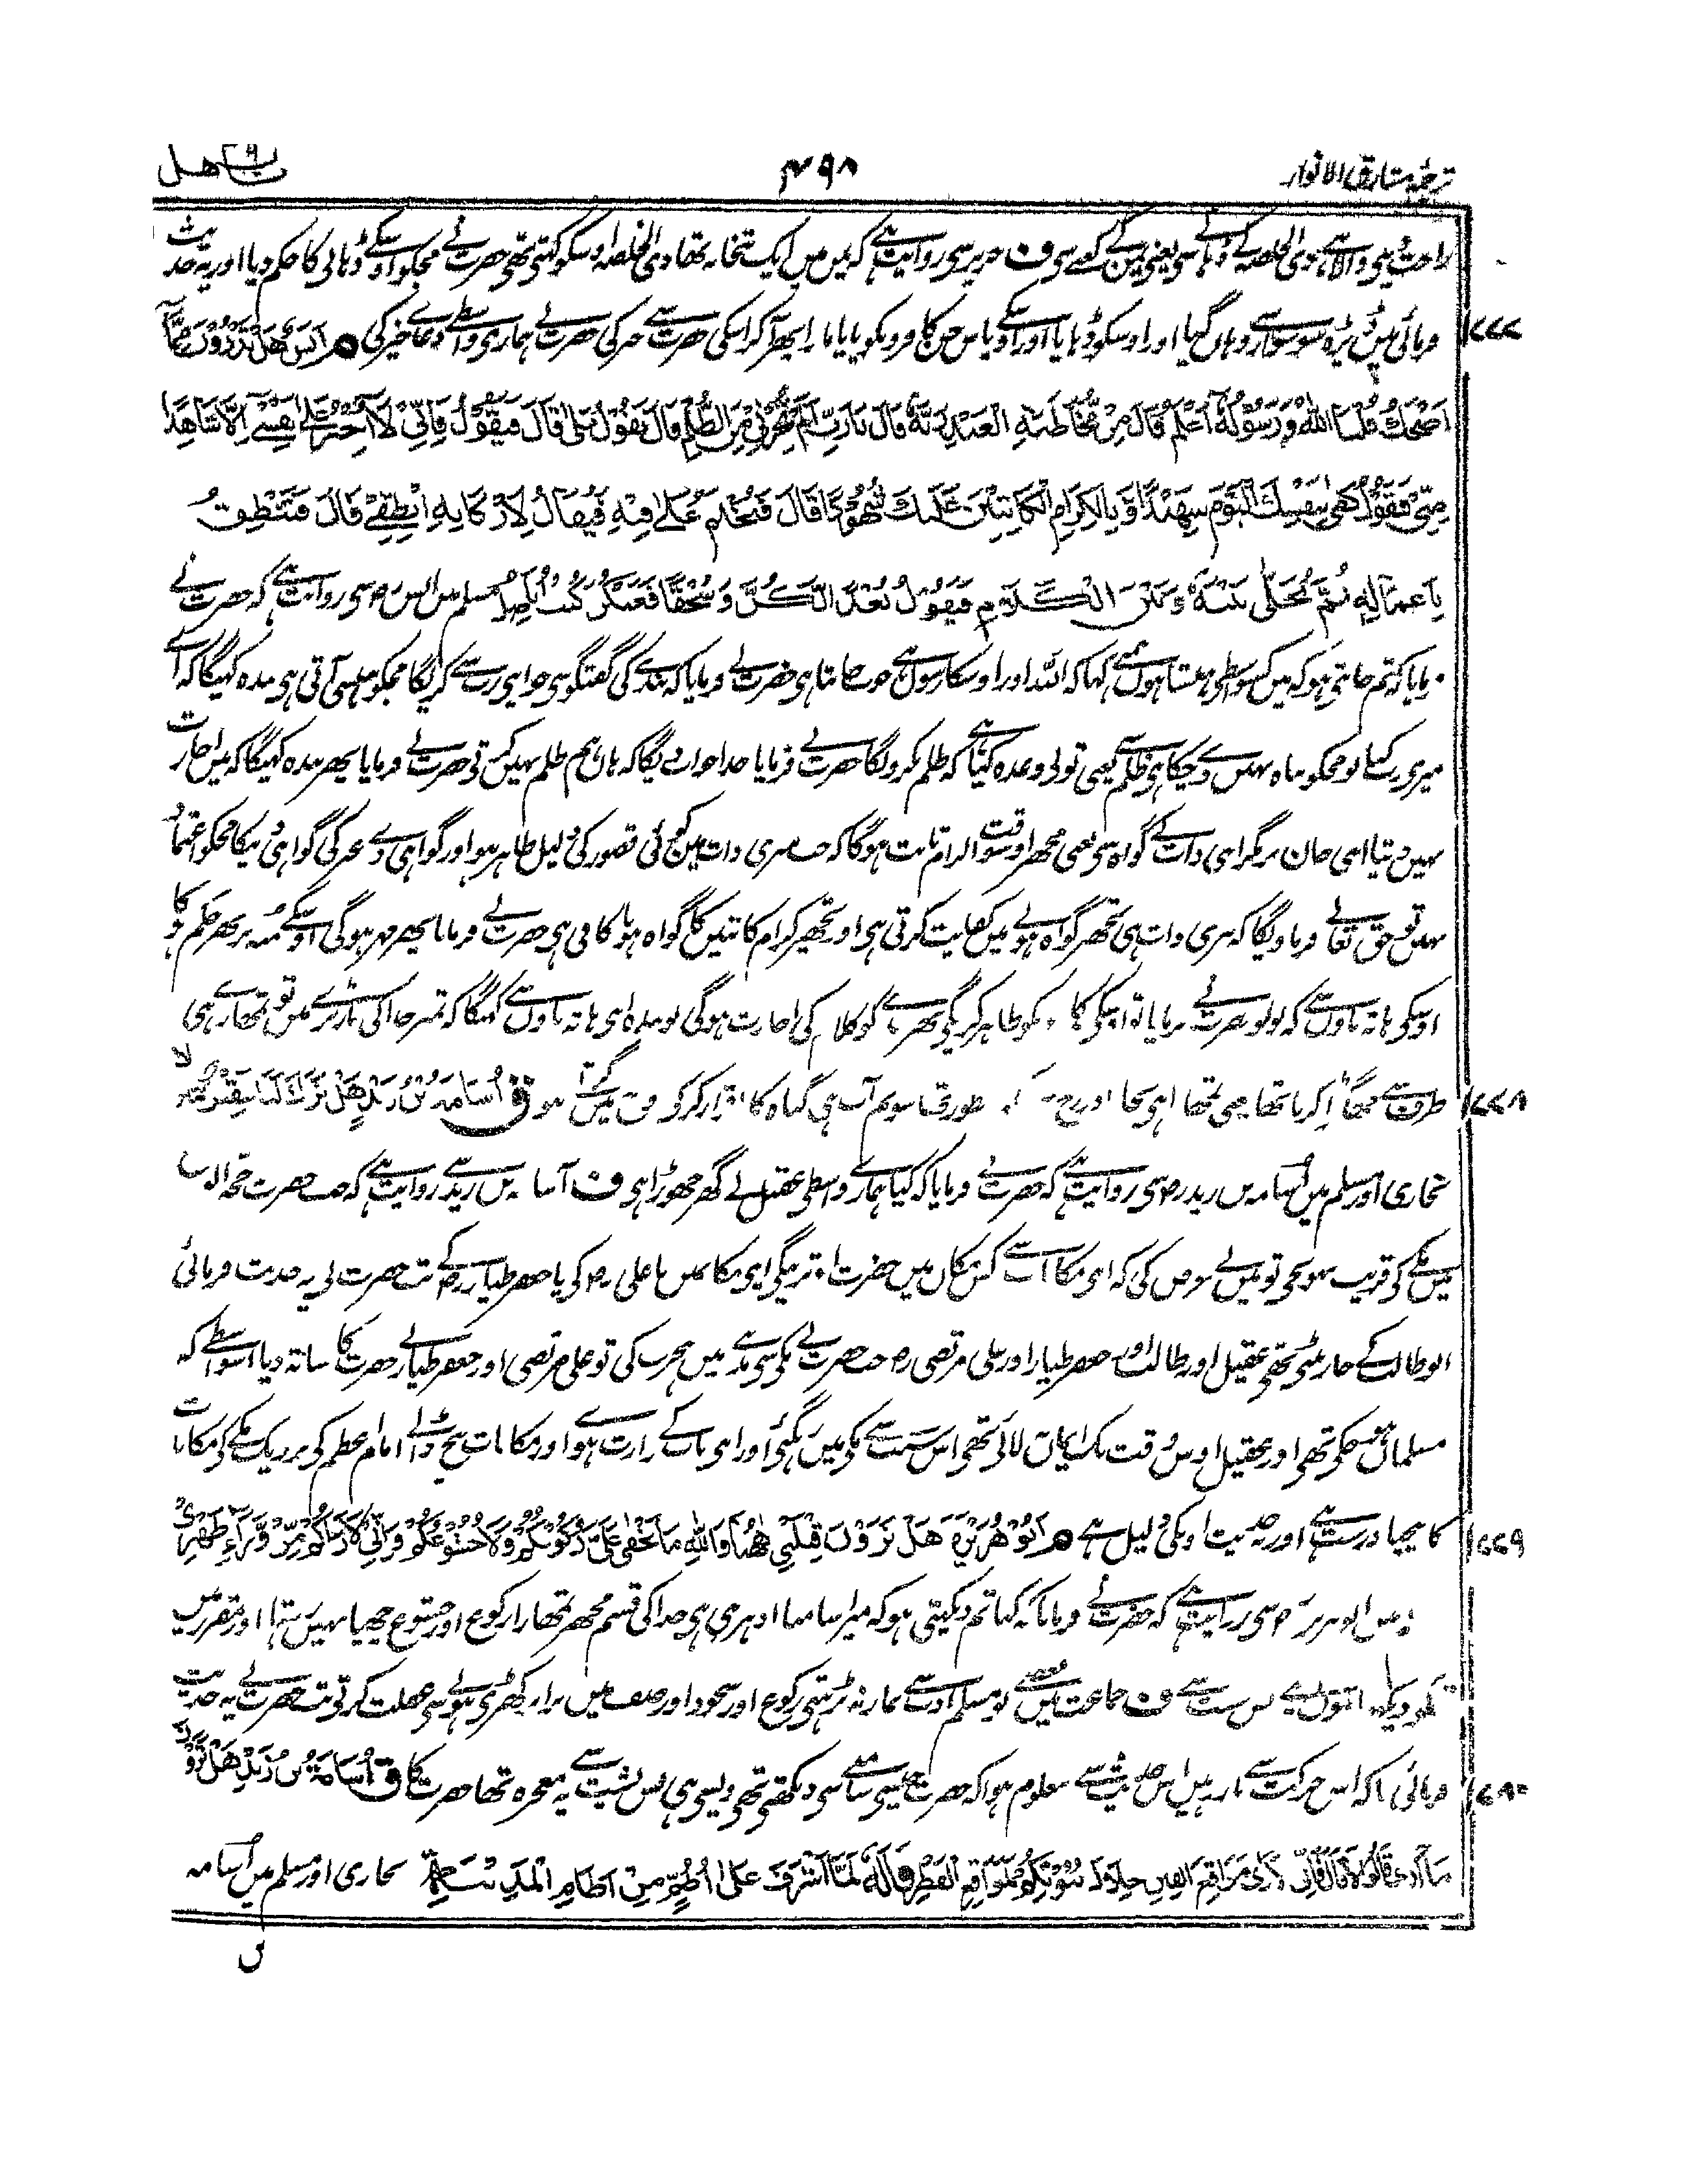 ترجمۂ مشارق الانوار
۴۹۸
باب هل
راحت دینی والا ہے ذی الخلصہ کے ڈہانے سی یعنی یمن کے کعبے سی ف جریر سی روایت ہے کہ یمن میں ایک بتخانہ تھا ذی الخلصہ اوسکو کہتی تھی حضرت نے مجکو اوسکے ڈہانی کا حکم دیا اور یہ حدیث
فرمائی میں ڈیڑہ سو سوار سے وہاں گیا اور اوسکو ڈہایا اور اوسکے پاس جن کافرونکو پایا مارا پھر آکر اسکی حضرت سے خبر کی حضرت نے ہماری واسطے دعاے خیر کی م اَنَسٌ هَلْ تَدْرُوْنَ مِمَّا
۱۷۷۷
اَضْحَكُ قُلْنَا اللّٰهُ وَرَسُوْلُهٗ اَعْلَمُ قَالَ مِنْ مُّخَاطَبَةِ الْعَبْدِ رَبَّهٗ قَالَ يَا رَبِّ اَلَمْ تُجِرْنِيْ مِنَ الظُّلْمِ قَالَ يَقُوْلُ بَلٰى قَالَ فَيَقُوْلُ فَاِنِّيْ لَا اُجِيْزُ عَلٰى نَفْسِيْ اِلَّا شَاهِدًا
مِنِّيْ فَيَقُوْلُ كَفٰى بِنَفْسِكَ الْيَوْمَ شَهِيْدًا وَّبِالْكِرَامِ الْكَاتِبِيْنَ عَلَيْكَ شُهُوْدًا قَالَ فَيُخْتَمُ عَلٰى فِيْهِ فَيُقَالُ لِاَرْكَانِهٖ اِنْطِقِيْ قَالَ فَتَنْطِقُ
بِاَعْمَالِهٖ ثُمَّ يُخَلّٰى بَيْنَهٗ وَبَيْنَ الْكَلَامِ فَيَقُوْلُ بُعْدًا لَّكُنَّ وَسُحْقًا فَعَنْكُنَّ كُنْتُ اُنَاضِلُ مسلم میں انس رض سی روایت ہے کہ حضرت نے
فرمایا کہ تم جانتی ہو کہ میں کسواسطی ہنستا ہوں ہمنے کہا کہ اللہ اور اوسکا رسول ہی خوب جانتا ہی حضرت نے فرمایا کہ بندے کی گفتگو سی جو اپنی رب سے کریگا مجکو ہنسی آتی ہی بندہ کہیگا کہ اے
میری رب کیا تو مجکو پناہ نہیں دے چکا ہی ظلم سے یعنی تونی وعدہ کیا ہے کہ ظلم نکرونگا حضرت نے فرمایا خدا جواب دیگا کہ ہاں ہم ظلم نہیں کرتی حضرت نے فرمایا پھر بندہ کہیگا کہ میں اجازت
نہیں دیتا اپنی جان پر مگر اپنی ذات کے گواہ سی یعنی مجھپر اوسوقت الزام ثابت ہوگا کہ جب میری ذات میں کوئی قصور کی دلیل ظاہر ہو اور گواہی دے غیر کی گواہی کا مجکو اعتماد
نہیں تو حق تعالے فرماویگا کہ تیری ذات ہی تجھپر گواہ ہونے میں کفایت کرتی ہی اور تجھپر کرام کاتبین کا گواہ ہونا کافی ہی حضرت نے فرمایا پھر مہر ہوگی اوسکے منہ پر پھر حکم ہوگا
اوسکی ہاتھ پاوں سے کہ بولو حضرت نے فرمایا تو اوسکی کاموں کو ظاہر کرینگی پھر بندے کو کلام کی اجازت ہوگی تو بندہ اپنی ہاتھ پاوں سے کہیگا کہ تمپر خدا کی مار پڑے میں تو تمھارے ہی
طرف سے جھگڑا کرتا تھا یعنی تمھارا ہی بچانا دوزخ سے منظور تھا سو تم آپ ہی گناہ کا اقرار کر کے دوزخ میں گئے ق اُسَامَةُ بْنُ زَيْدٍ هَلْ تَرَكَ لَنَا عَقِيْلٌ مَنْزِلًا
۱۷۷۸
بخاری اور مسلم میں اسامہ بن زید رض سی روایت ہے کہ حضرت نے فرمایا کہ کیا ہمارے واسطی عقیل نے گھر چھوڑا ہی ف اسامہ بن زید سے روایت ہے کہ جب حضرت حجۃ الوداع
میں مکے کی قریب پہونچی تو میں نے عرض کی کہ اپنی مکانات سے کس مکان میں حضرت اترینگی اپنی مکان میں یا علی رض کی یا جعفر طیار رض کے تب حضرت نی یہ حدیث فرمائی
ابوطالب کے چار بیٹی تھی عقیل اور طالب اور جعفر طیار اور علی مرتضی رض جب حضرت نے مکی سی مدینے میں ہجرت کی تو علی مرتضی اور جعفر طیار نے حضرت کا ساتھ دیا اسواسطے کہ
مسلمان ہوچکی تھی اور عقیل اوس وقت تک ایمان نلائی تھی اس سبب سے مکی میں رہگئی اور اپنی باپ کے وارث ہوے اور مکانات بیچ ڈالے امام اعظم کی نزدیک مکے کی مکانات
کا بیچنا درست ہے اور یہ حدیث اونکی دلیل ہے م اَبُوْ هُرَيْرَةَ هَلْ تَرَوْنَ قِبْلَتِيْ هٰهُنَا وَاللّٰهِ مَا يَخْفٰى عَلَيَّ رُكُوْعُكُمْ وَلَا خُشُوْعُكُمْ وَاِنِّيْ لَاَرَاكُمْ مِنْ وَّرَآءِ ظَهْرِيْ
۱۷۷۹
میں ابوہریرہ رض سی روایت ہے کہ حضرت نے فرمایا کہ کیا تم دیکھتی ہو کہ میرا سامنا ادہر ہی ہی خدا کی قسم مجھپر تمھارا رکوع اور خشوع چھپا نہیں رہتا اور مقرر میں
تمکو دیکھتا ہوں اپنے پس پشت سے ف جماعت میں بعضے نو مسلم ادب سے نماز نہ پڑہتی رکوع اور سجود اور صف میں برابر کھڑی ہونے سی غفلت کرتی تب حضرت نے یہ حدیث
فرمائی تاکہ اس حرکت سے باز رہیں اس حدیث سے معلوم ہوا کہ حضرت جیسی سامنے سی دیکھتی تھی ویسی ہی پس پشت سے یہ معجزہ تھا حضرت کا ق اُسَامَةُ بْنُ زَيْدٍ هَلْ تَرَوْنَ
۱۷۸۰
مَا اَرٰى قَالُوْا لَا قَالَ فَاِنِّيْ لَاَرٰى مَوَاقِعَ الْفِتَنِ خِلَالَ بُيُوْتِكُمْ كَمَوَاقِعِ الْقَطْرِ قَالَهٗ لَمَّا اَشْرَفَ عَلٰى اُطُمٍ مِنْ اٰطَامِ الْمَدِيْنَةِ بخاری اور مسلم میں اسامہ